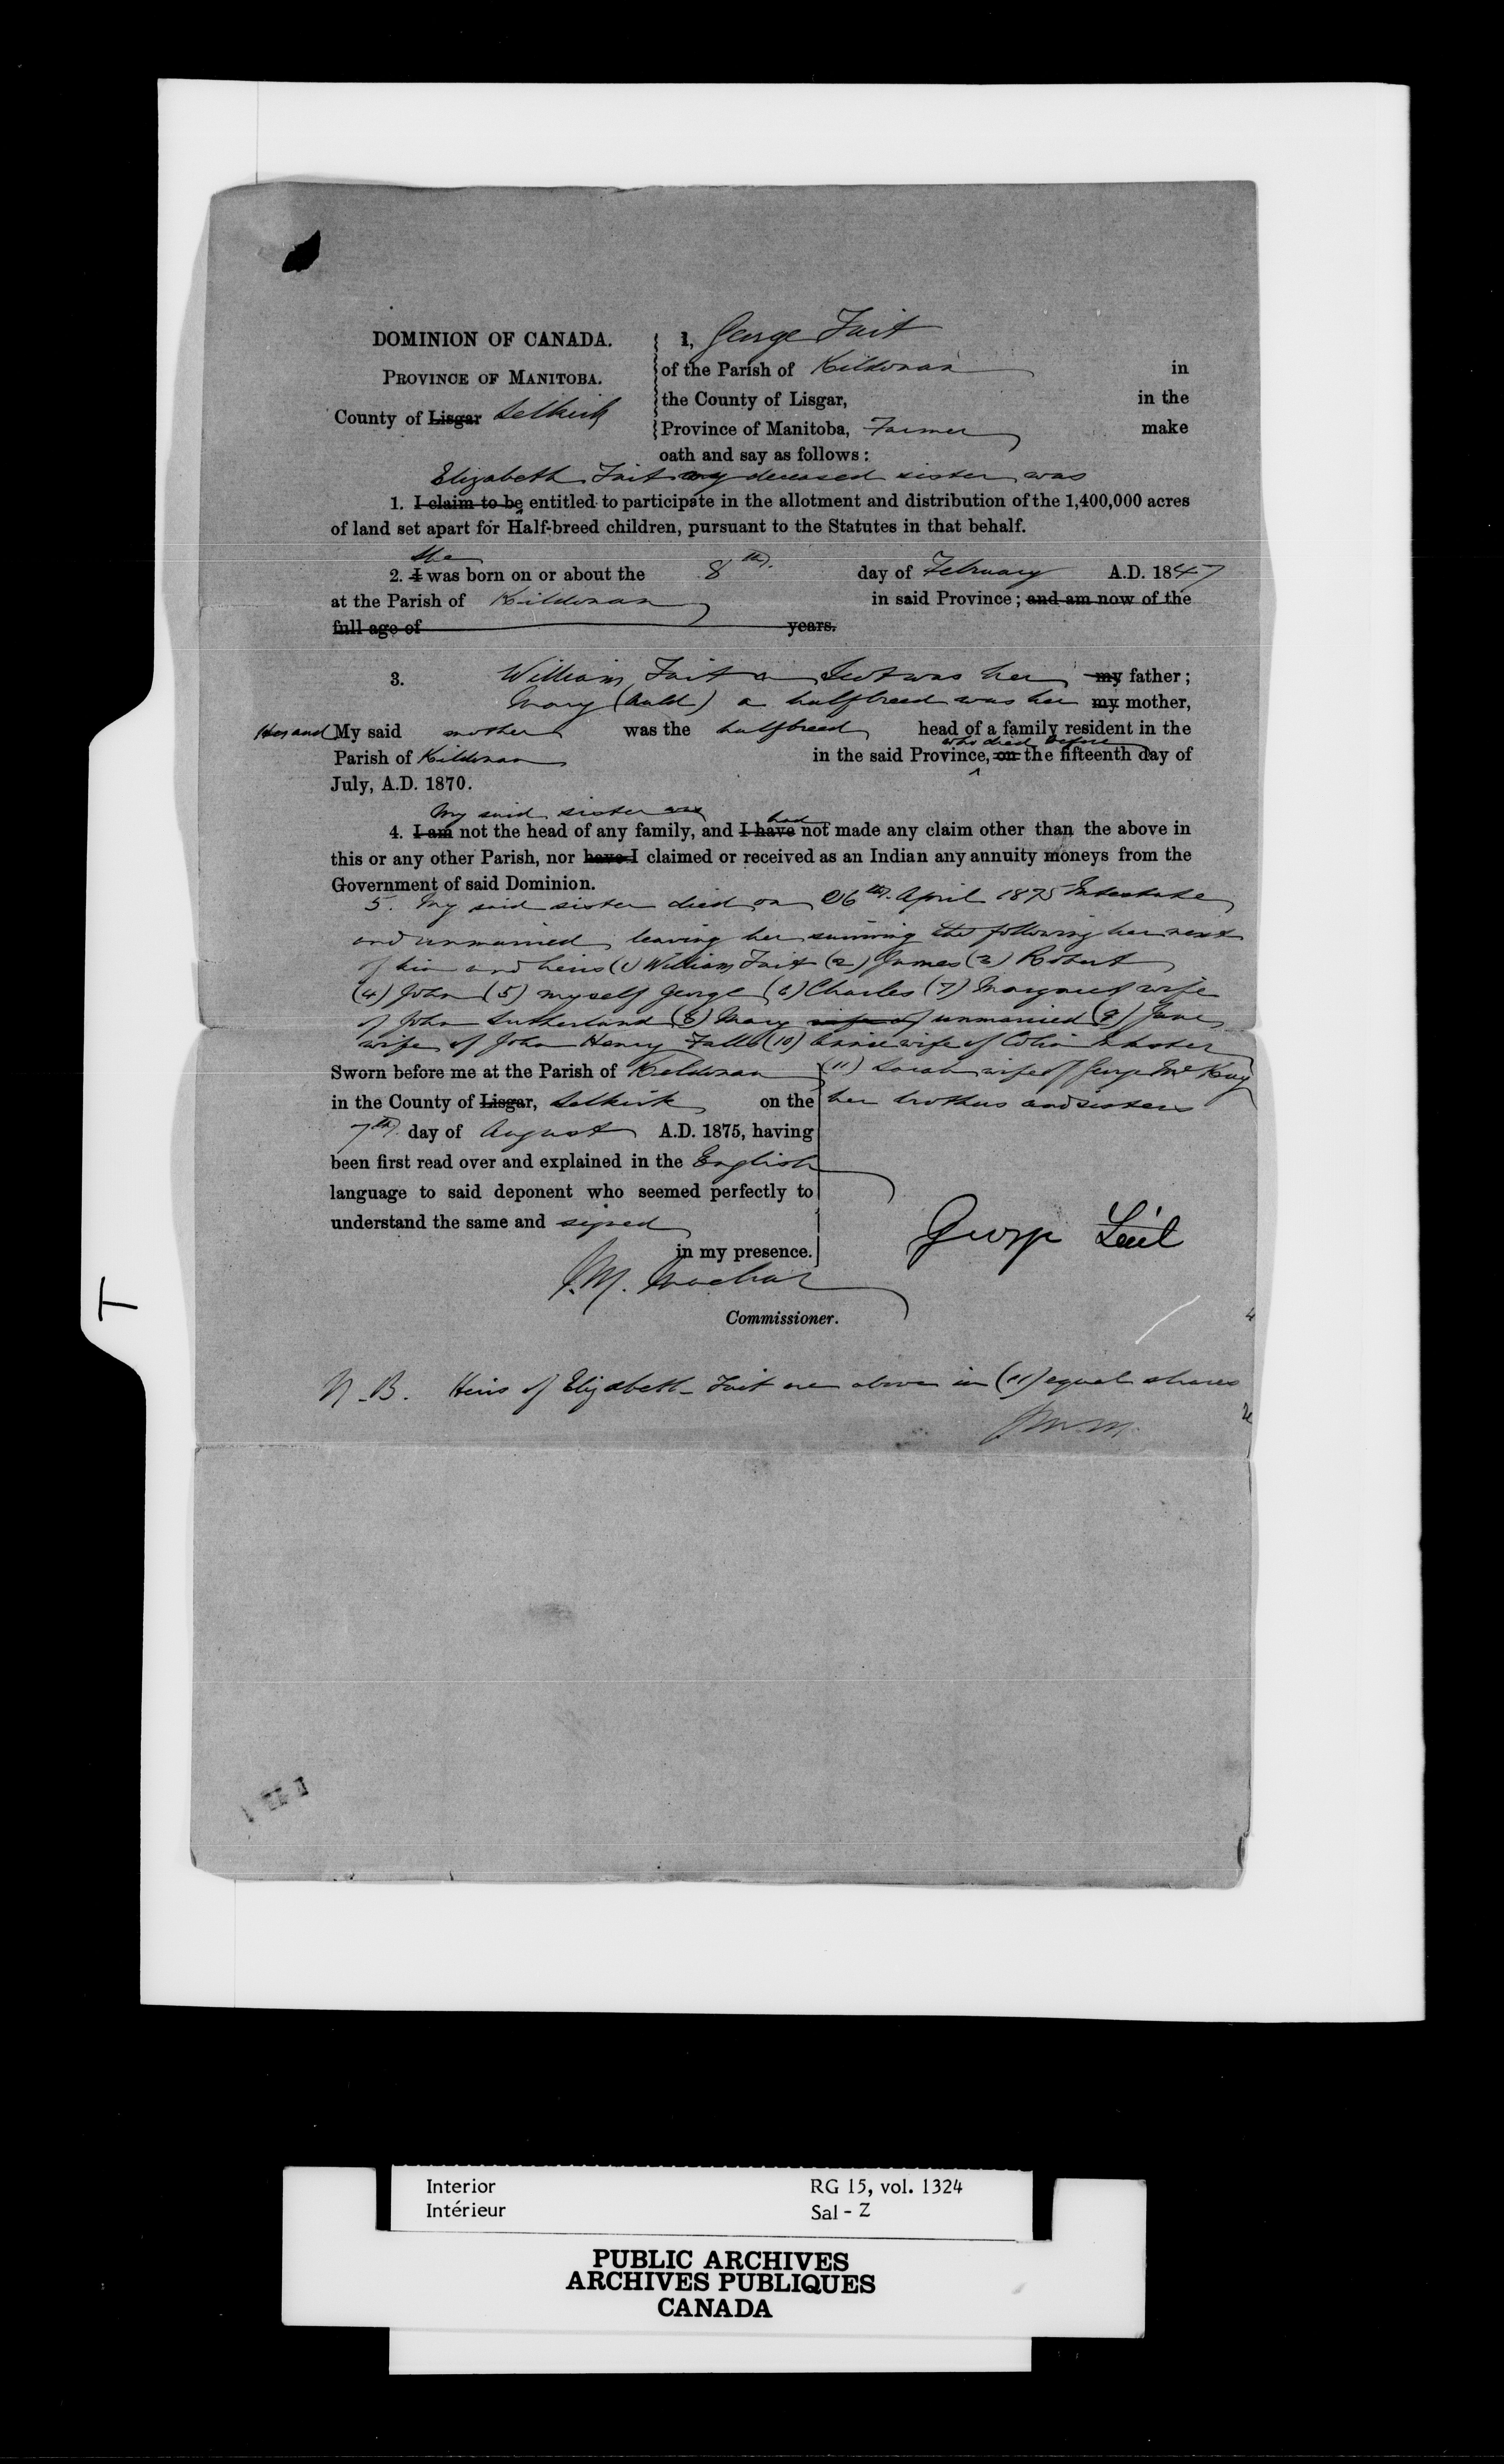 DOMINION OF CANADA.
PROVINCE OF MANITOBA.
County of Lisgar Selkirk
I, George Tait
of the Parish of Kildonan in
the County of Lisgar, in the
Province of Manitoba, Farmer make
oath and say as follows:
Elizabeth Tait my deceased sister was
1. I claim to be entitled to participate in the allotment and distribution of the 1,400,000 acres
of land set apart for Half-breed children, pursuant to the Statutes in that behalf.
She
2. I was born on or about the 8th day of February A.D. 1847
at the Parish of Kildonan in said Province; and am now of the
full age of years.
3. William Tait a Scot was her my father;
Mary (Auld) a halfbreed was her my mother,
Her and My said mother was the halfbreed head of a family resident in the
who died before
Parish of Kildonan in the said Province, on the fifteenth day of
July, A.D. 1870.
My said sister was had
4. I am not the head of any family, and I have not made any claim other than the above in
this or any other Parish, nor have I claimed or received as an Indian any annuity moneys from the
Government of said Dominion.
5. My said sister died on 26th April 1875 Intestate
and unmarried leaving her surviving the following her next
of kin and heirs (1) William Tait (2) James (3) Robert
(4) John (5) myself George (6) Charles (7) Margaret wife
of John Sutherland (8) Mary wife of unmarried (9) Jane
wife of John Henry (10) wife of Colin Inkster
(11) Sarah wife of George McKay
her brothers and sisters
Sworn before me at the Parish of Kildonan
in the County of Lisgar, Selkirk on the
7th day of August A.D. 1875, having
been first read over and explained in the English
language to said deponent who seemed perfectly to
understand the same and signed
in my presence.
George Tait
J.M. Machar
Commissioner.
N.B. Heirs of Elizabeth Tait are above in (11) equal shares
J.M.M.
T
Interior RG 15, vol. 1324
Intérieur Sal - Z
PUBLIC ARCHIVES
ARCHIVES PUBLIQUES
CANADA